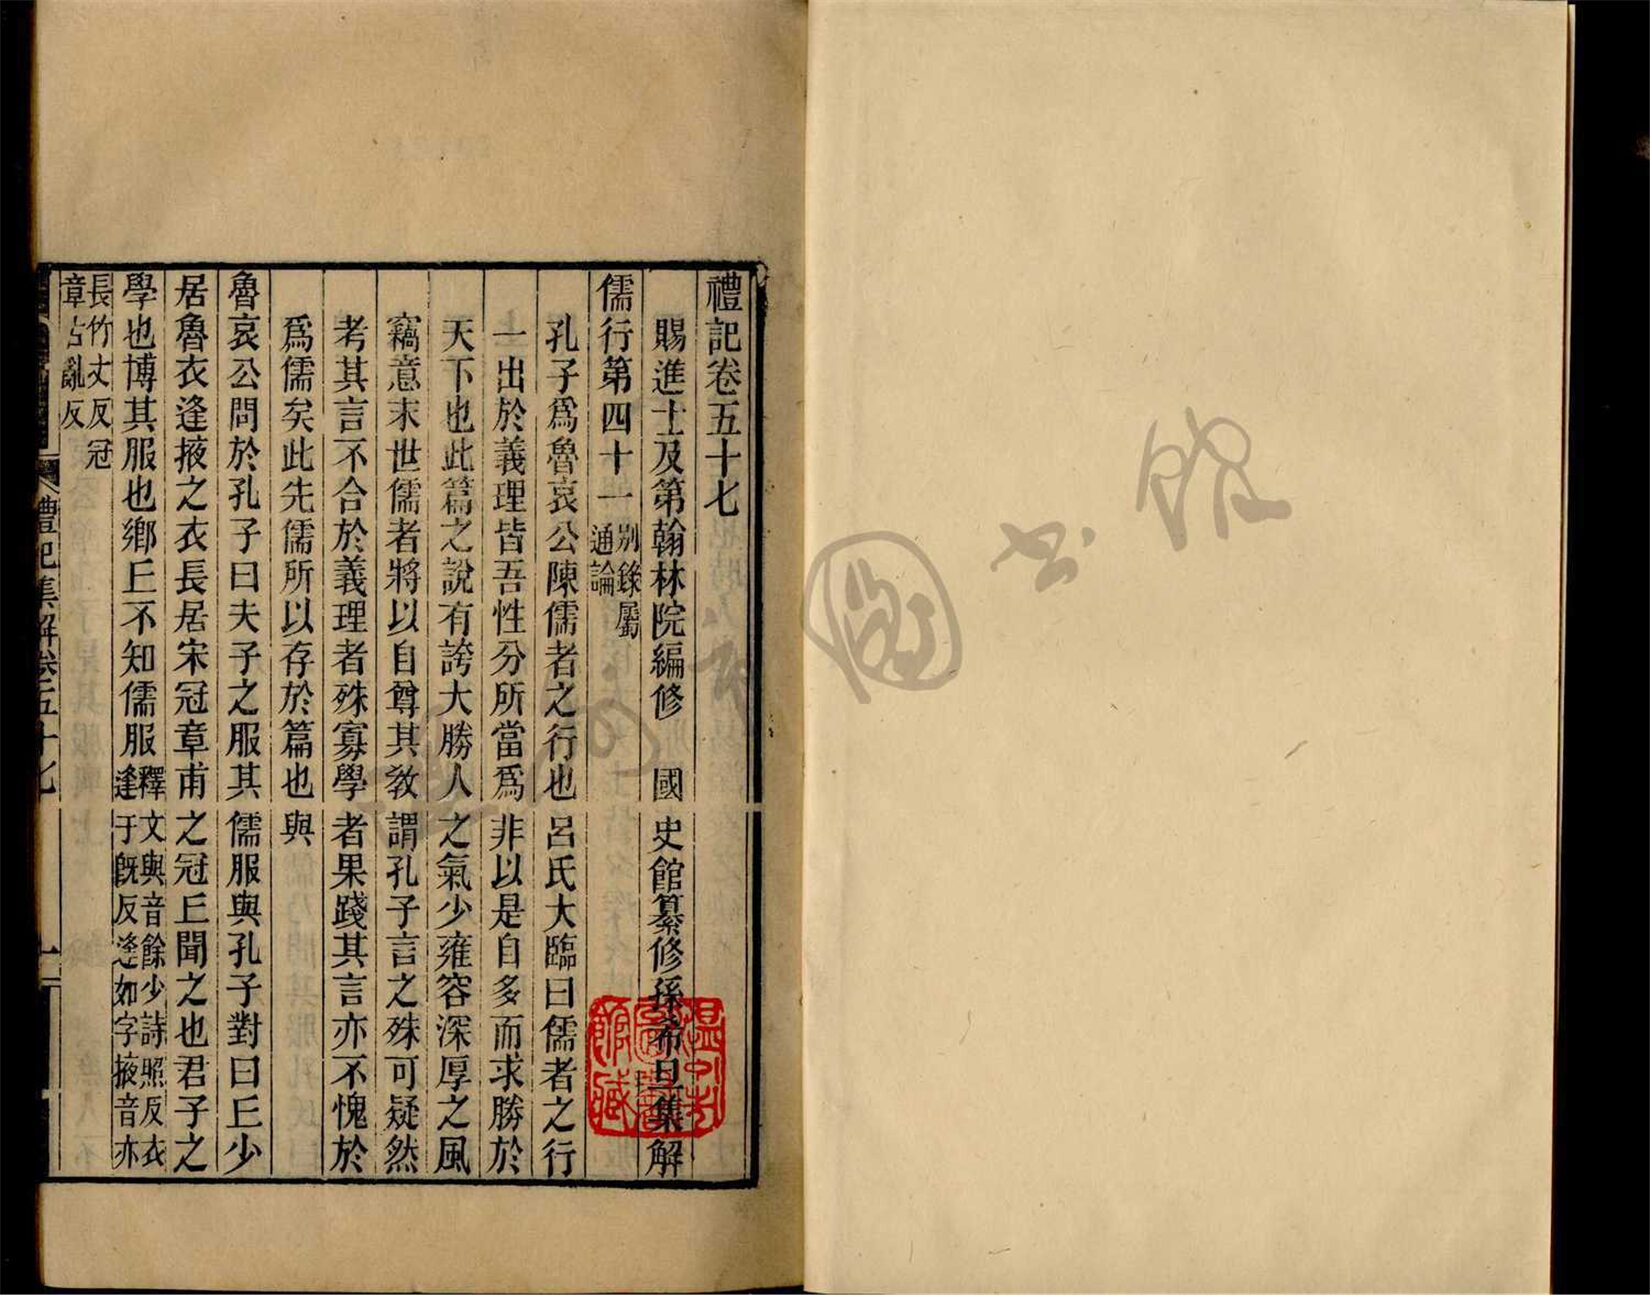 禮記卷五十七
賜進士及第翰林院編修　國史館纂修孫希旦集解
儒行第四十一別錄屬通論
孔子爲魯哀公陳儒者之行也呂氏大臨曰儒者之行
一出於義理皆吾性分所當爲非以是自多而求勝於
天下也此篇之說有誇大勝人之氣少雍容深厚之風
竊意末世儒者將以自尊其敎謂孔子言之殊可疑然
考其言不合於義理者殊寡學者果踐其言亦不愧於
爲儒矣此先儒所以存於篇也與
魯哀公問於孔子曰夫子之服其儒服與孔子對曰丘少
居魯衣逢掖之衣長居宋冠章甫之冠丘聞之也君子之
學也博其服也鄉丘不知儒服釋文與音餘少詩照反衣逢于旣反逢如字掖音亦
長竹丈反冠章古亂反
禮記集解卷五十七
一
國
书
館